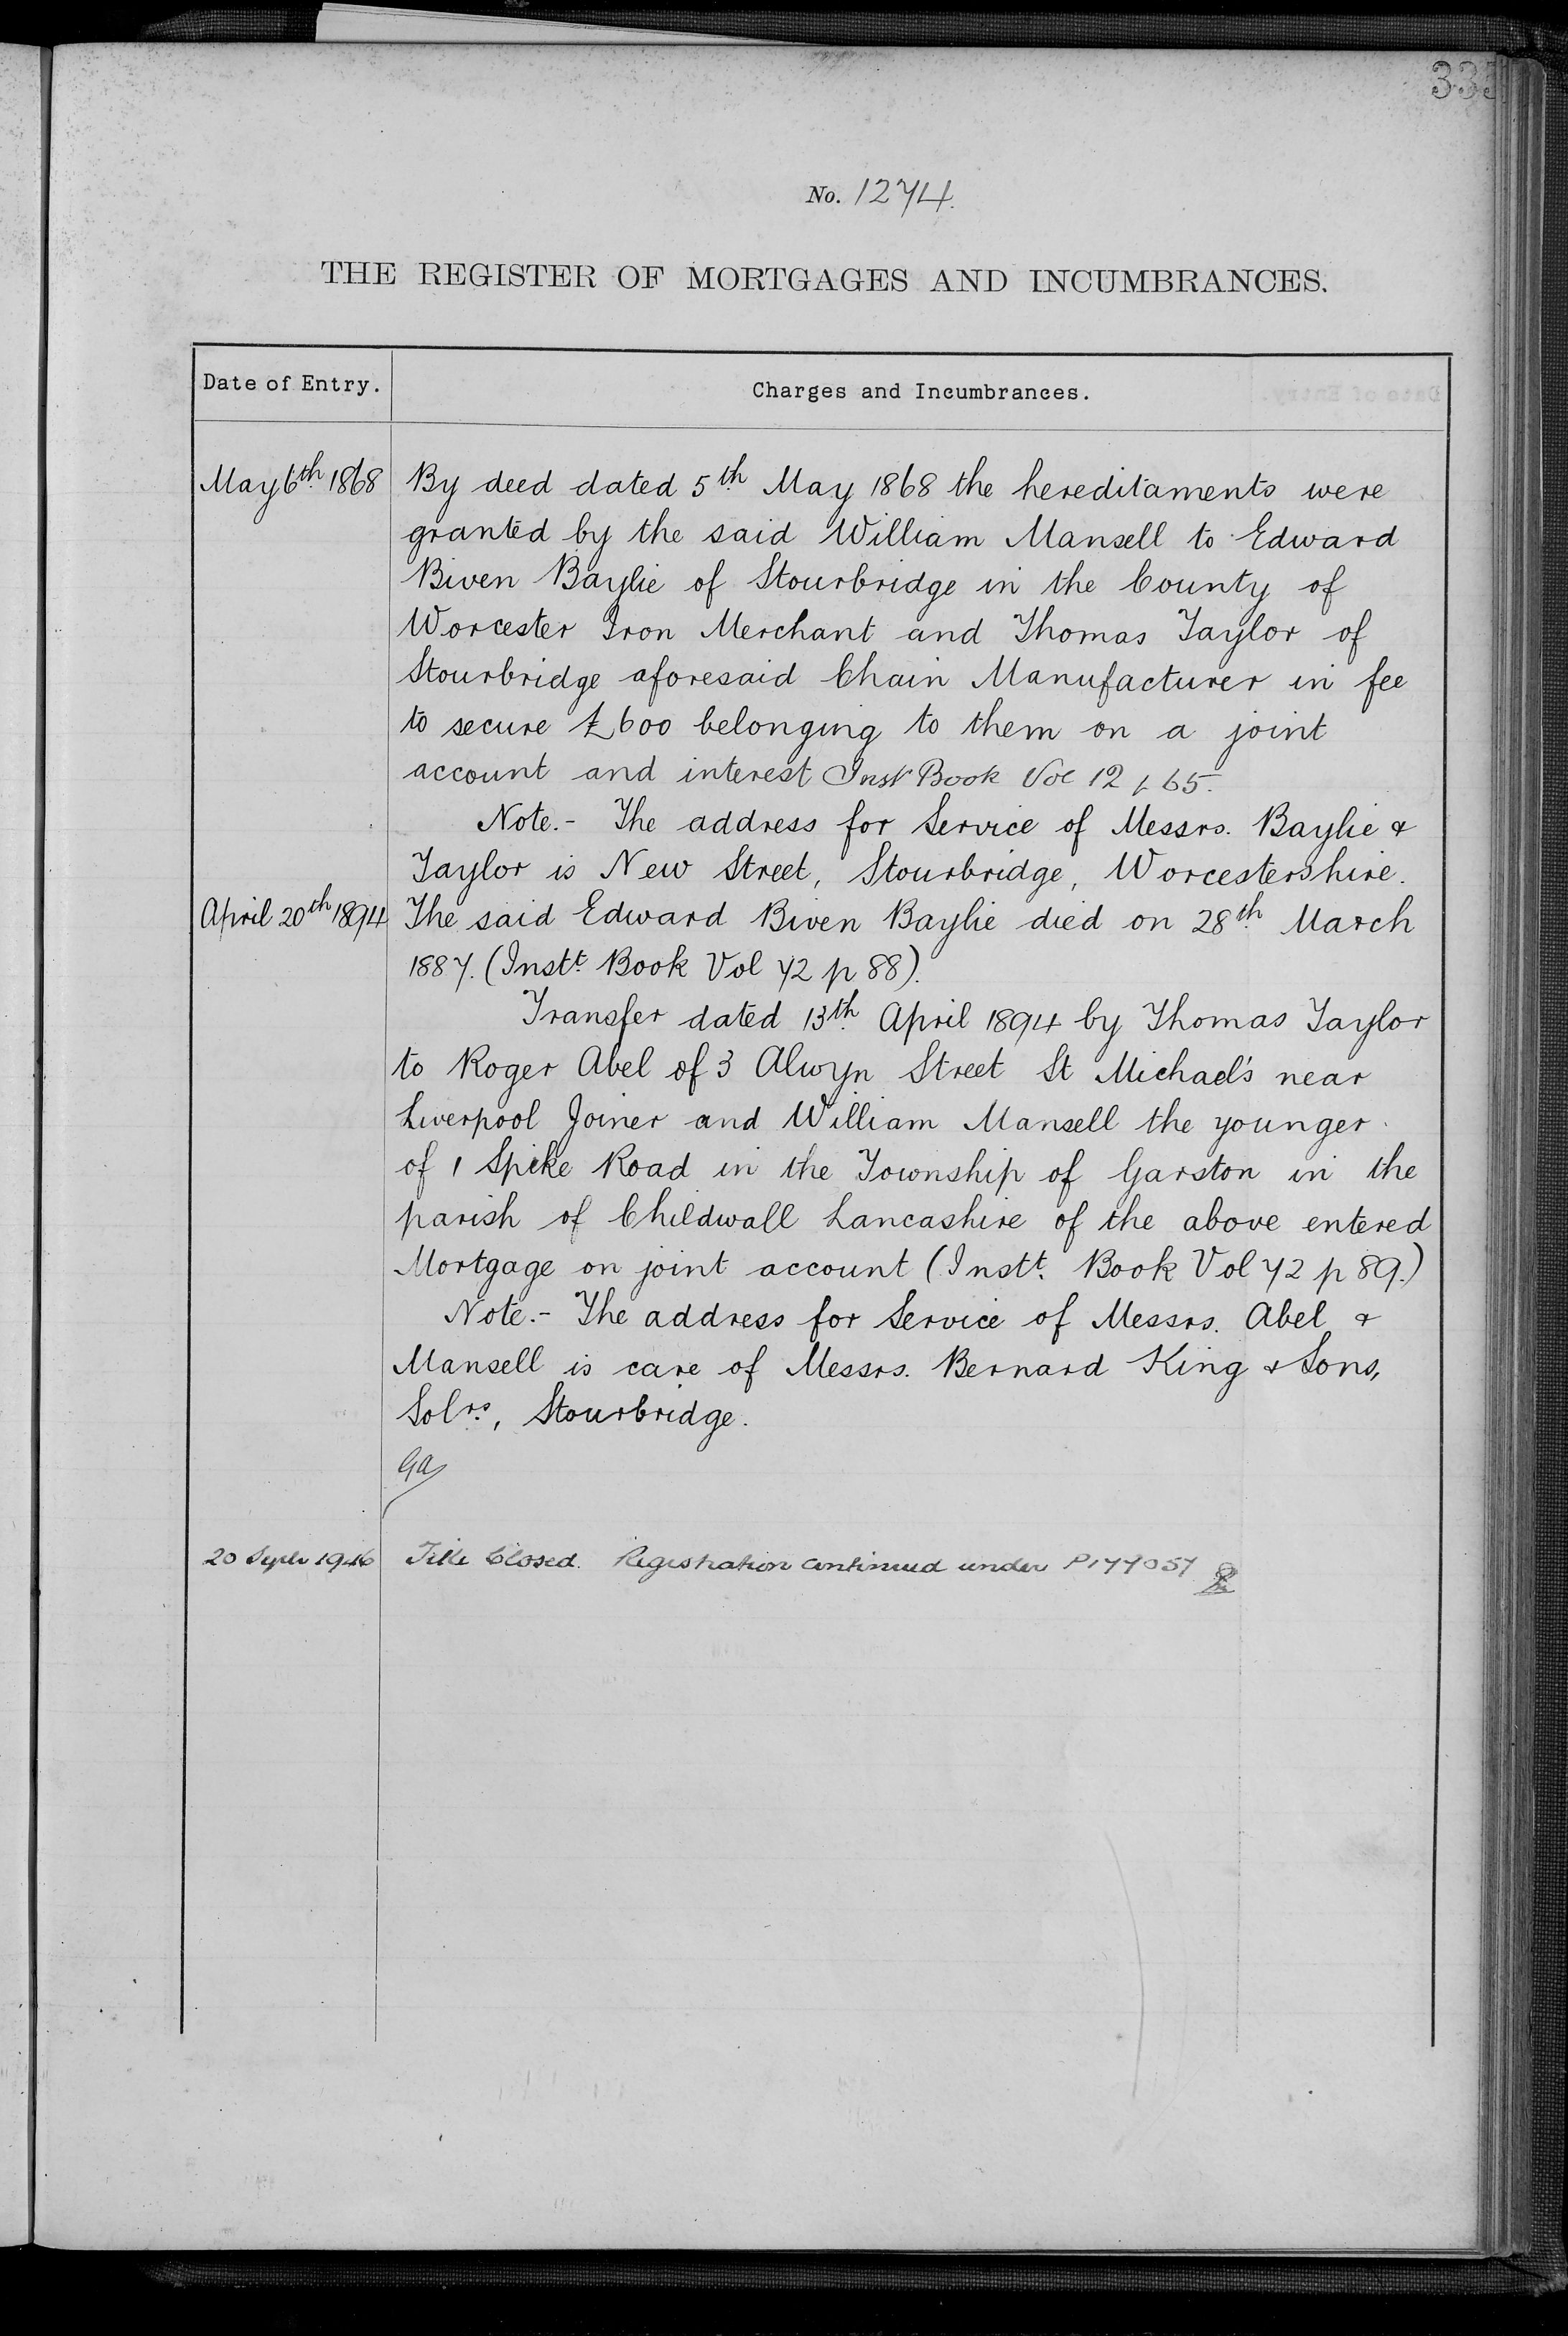 335
No. 1274.
THE REGISTER OF MORTGAGES AND INCUMBRANCES.
Date of Entry.
Charges and Incumbrances.
May 6th 1868
By deed dated 5th May 1868 the hereditaments were
granted by the said William Mansell to Edward
Biven Baylie of Stourbridge in the County of
Worcester Iron Merchant and Thomas Taylor of
Stourbridge aforesaid Chain Manufacturer in fee
to secure £600 belonging to them on a joint
account and interest Inst Book Vol 12 p 65.
Note.- The address for Service of Messrs. Baylie &
Taylor is New Street, Stourbridge, Worcestershire.
April 20th 1894
The said Edward Biven Baylie died on 28th March
1887. (Instt. Book Vol 72 p 88).
Transfer dated 13th April 1894 by Thomas Taylor
to Roger Abel of 3 Alwyn Street St Michael's near
Liverpool Joiner and William Mansell the younger
of 1 Speke Road in the Township of Garston in the
parish of Childwall Lancashire of the above entered
Mortgage on joint account (Instt. Book Vol 72 p 89.)
Note.- The address for Service of Messrs. Abel &
Mansell is care of Messrs. Bernard King & Sons,
Solrs., Stourbridge.
GA
20 Septr 1946
Title Closed. Registration continued under P177057